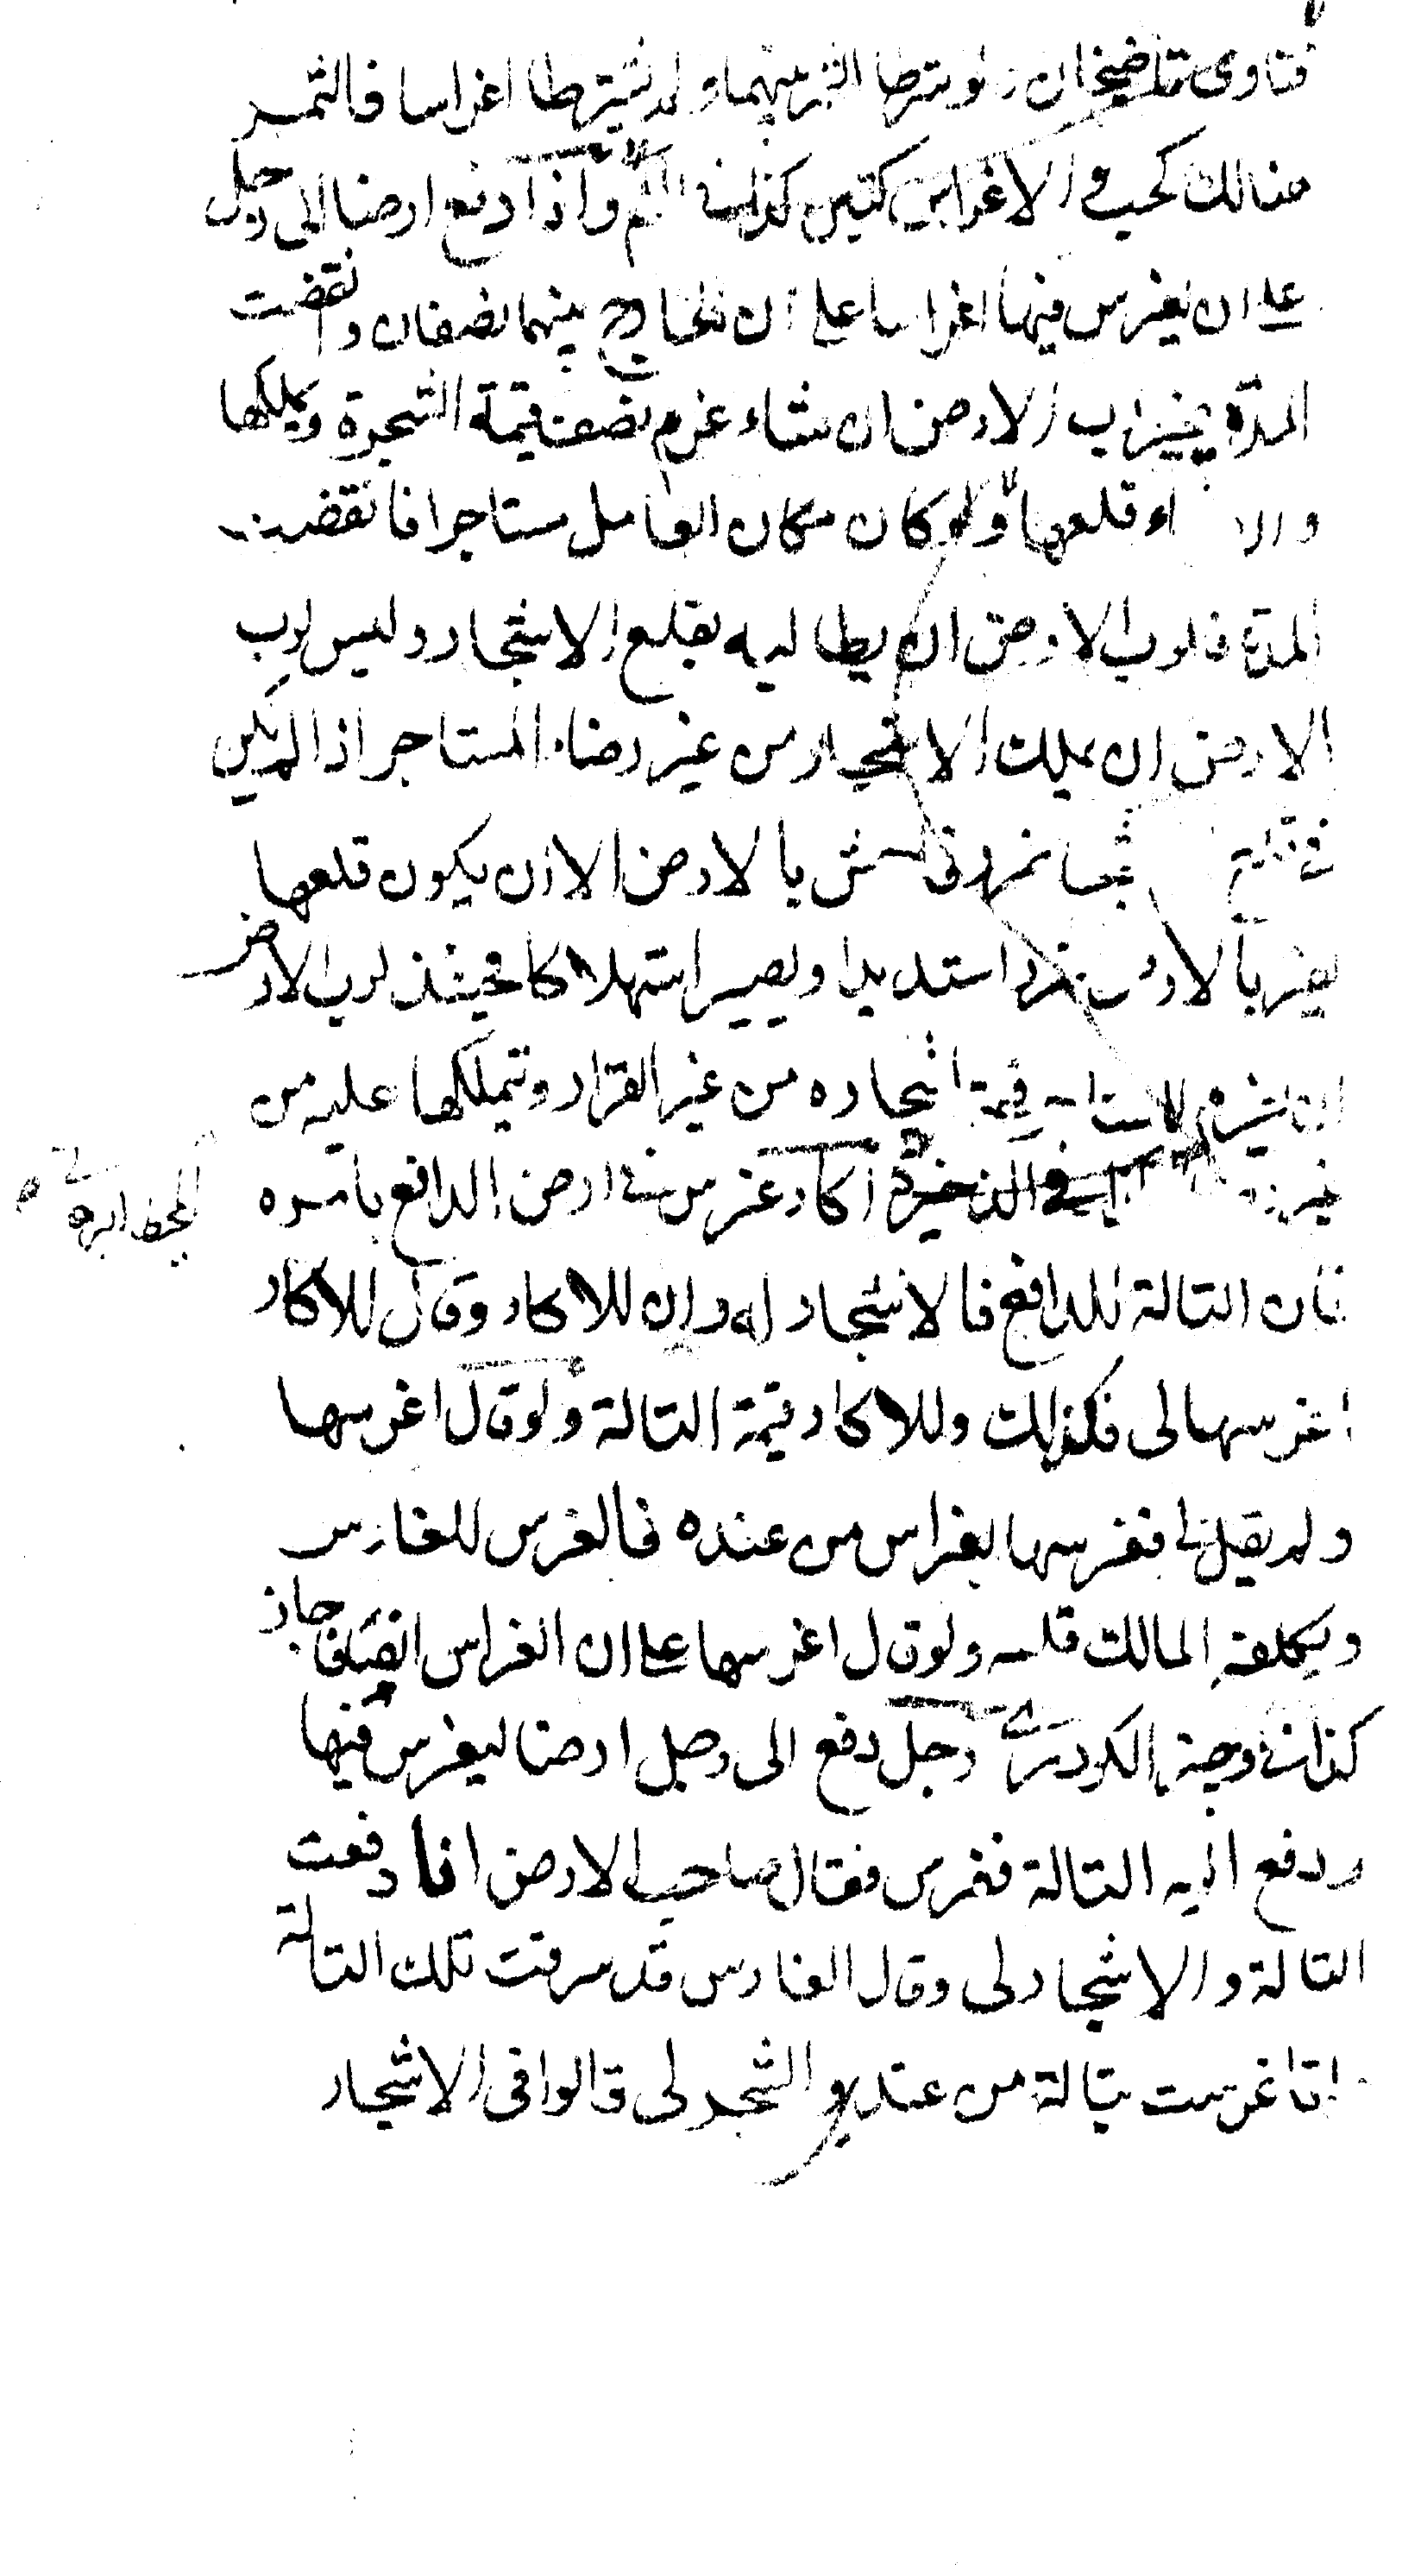 فتاوى قاضيخان ولو شرطا الثمر بينهما ولم يشترطا اغراسا فالثمر
هنالك كحب والاغراس كتبن كذا في واذا دفع ارضا الى رجل
على ان يغرس فيها اغراسا على ان الخارج بينهما نصفان وانقضت
المدة يخير رب الارض ان شاء غرم نصف قيمة الشجرة ويملكها
وان شاء قلعها ولو كان مكان العامل مستاجرا فانقضت
المدة فلرب الارض ان يطالبه بقلع الاشجار وليس لرب
الارض ان يملك الاشجار من غير رضاء المستاجر اذا لم يكن
في قلعها ضرر فاحش بالارض الا ان يكون قلعها
يضر بالارض ضررا شديدا ويصير استهلاكا فحينئذ لرب الارض
ان يغرم للمستاجر قيمة اشجاره من غير القرار ويتملكها عليه من
غير رضاه في الذخيرة اكار غرس في ارض الدافع بامره
فان التالة للدافع فالاشجار له وان للاكار وقال للاكار
اغرسها لى فكذلك وللاكار قيمة التالة ولو قال اغرسها
ولم يقل لى فغرسها بغراس من عنده فالغرس للغارس
ويكلفه المالك قلعه ولو قال اغرسها على ان الغراس انصافا جاز
كذا في وجيز الكردرى رجل دفع الى رجل ارضا ليغرس فيها
ودفع اليه التالة فغرس فقال صاحب الارض انا دفعت
التالة والاشجار لى وقال الغارس قد سرقت تلك التالة
انا غرست بتالة من عندى والشجر لى قالوا فى الاشجار